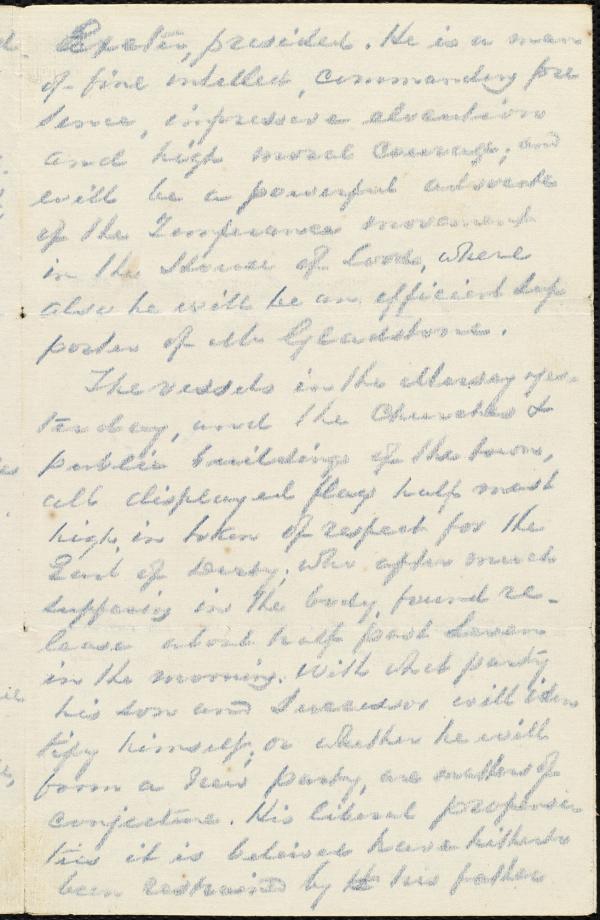 Exeter, presided. He is a man
of fine intellect, commanding pre
sence, impressive elocution
and high moral courage; and
will be a powerful advocate
of the Temperance movement
in the House of Lords, where
also he will be an efficient sup
porter of Mr Gladstone.
The vessels in the Mersey yes-
terday, and the Churches &
public buildings of the town,
all displayed flags half mast
high, in token of respect for the
Earl of Derby, who after much
suffering in the body, found re-
lease about half past seven
in the morning. With what party
his son and successor will iden
tify himself, or whether he will
form a new party, are matters of
conjecture. His liberal propensi
ties it is beleived have hitherto
been restrained by his father